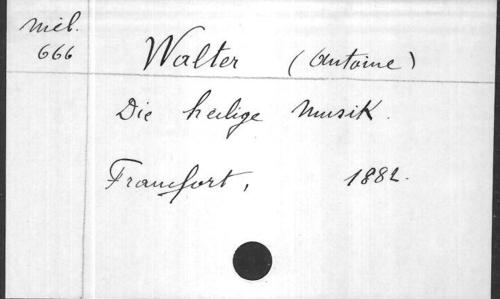 Mél.
666
Walter (Antoine)
Die heilige Musik.
Francfort, 1882.